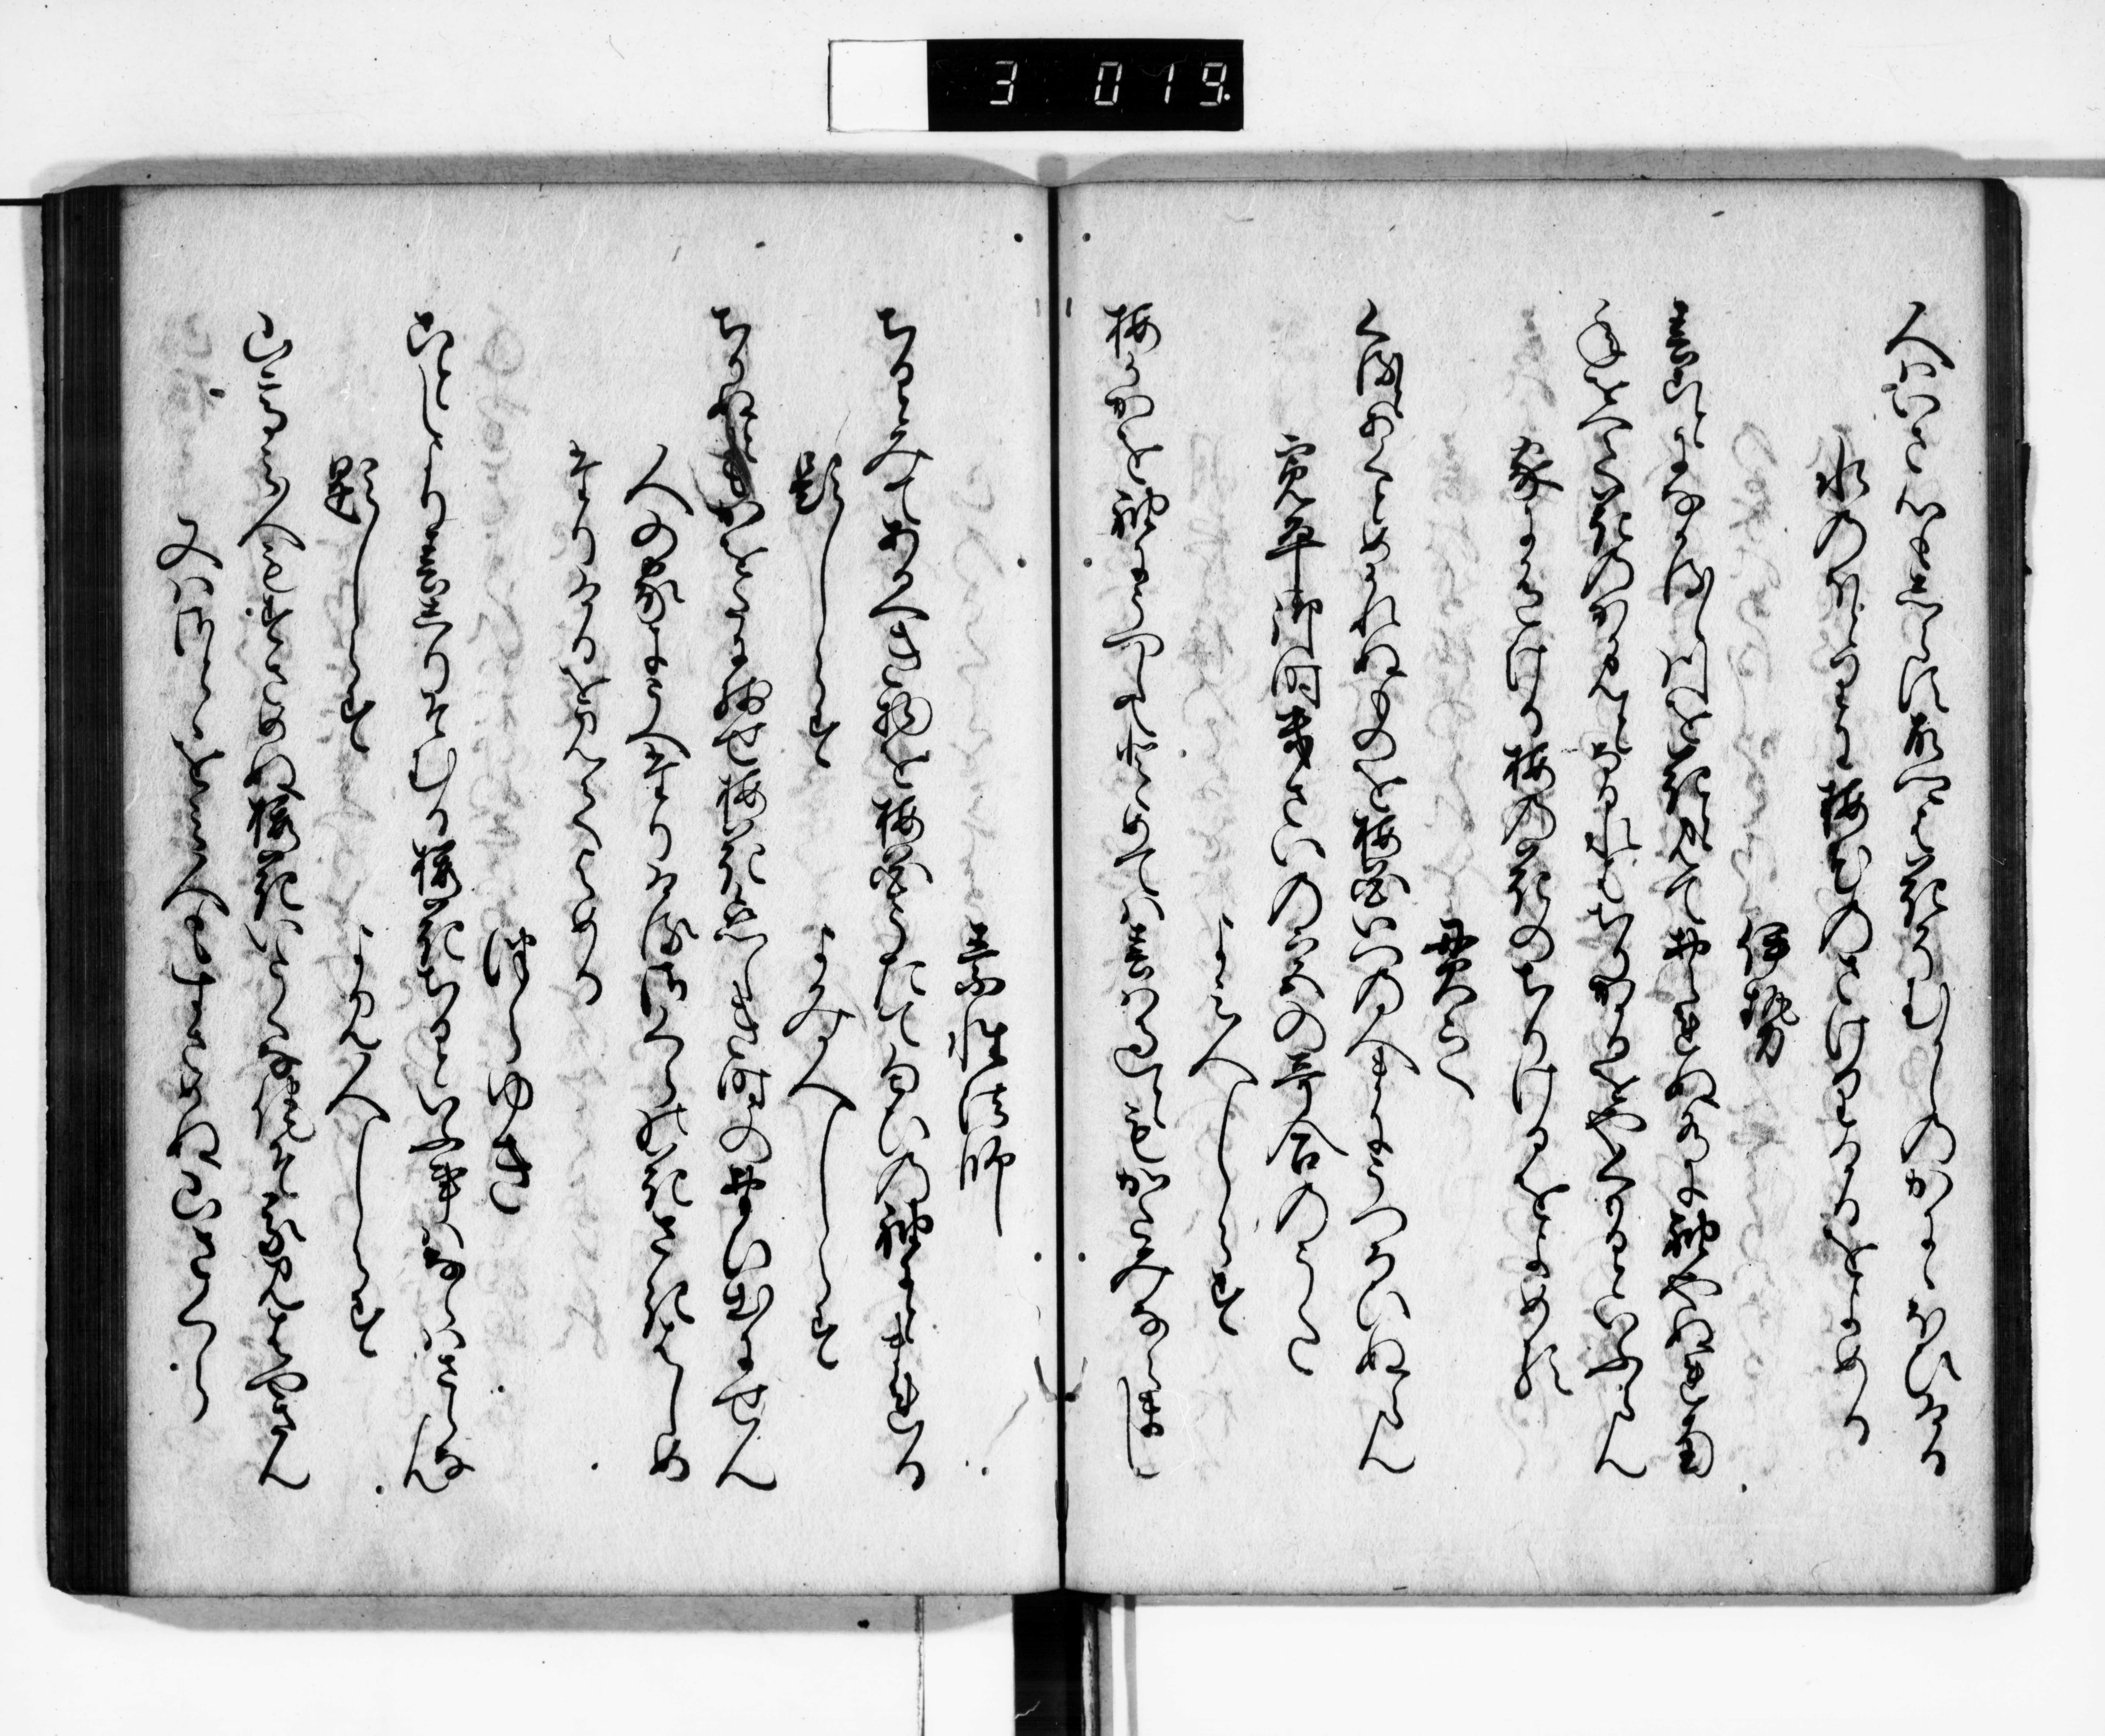 3 019.
人はいさ心もしらす故郷は花そむかしのかにゝほひける
水のほとりに梅のさけりけるをよめる
伊勢
春ことになかるゝ河を花とみておられぬ水に袖やぬれ南
年をへて花のかゝみとなる水はちりかゝるをやくもるといふらん
家にありける梅の花のちりけるをよめる
貫之
くるとあくとめかれぬものを梅花いつの人まにうつろひぬらん
寛平御時きさいの宮の哥合のうた
よみ人しらす
梅かかを袖にうつしてとゝめては春はすくともかたみならまし
素性法師
ちるとみてあるへき物を梅花うたてにほひの袖にとまれる
題しらす
よみ人しらす
ちりぬともかをたにのこせ梅花恋しき時のおもひ出にせん
人の家にうへたりけるさくらの花さきはしめ
たりけるをみてよめる
つらゆき
ことしより春しりそむる桜花ちるといふ事はならはさらなん
題しらす
よみ人しらす
山たかみ人もすさめぬ桜花いたくなわひそ我みはやさん
又は里とをみ人もすさめぬ山さくら